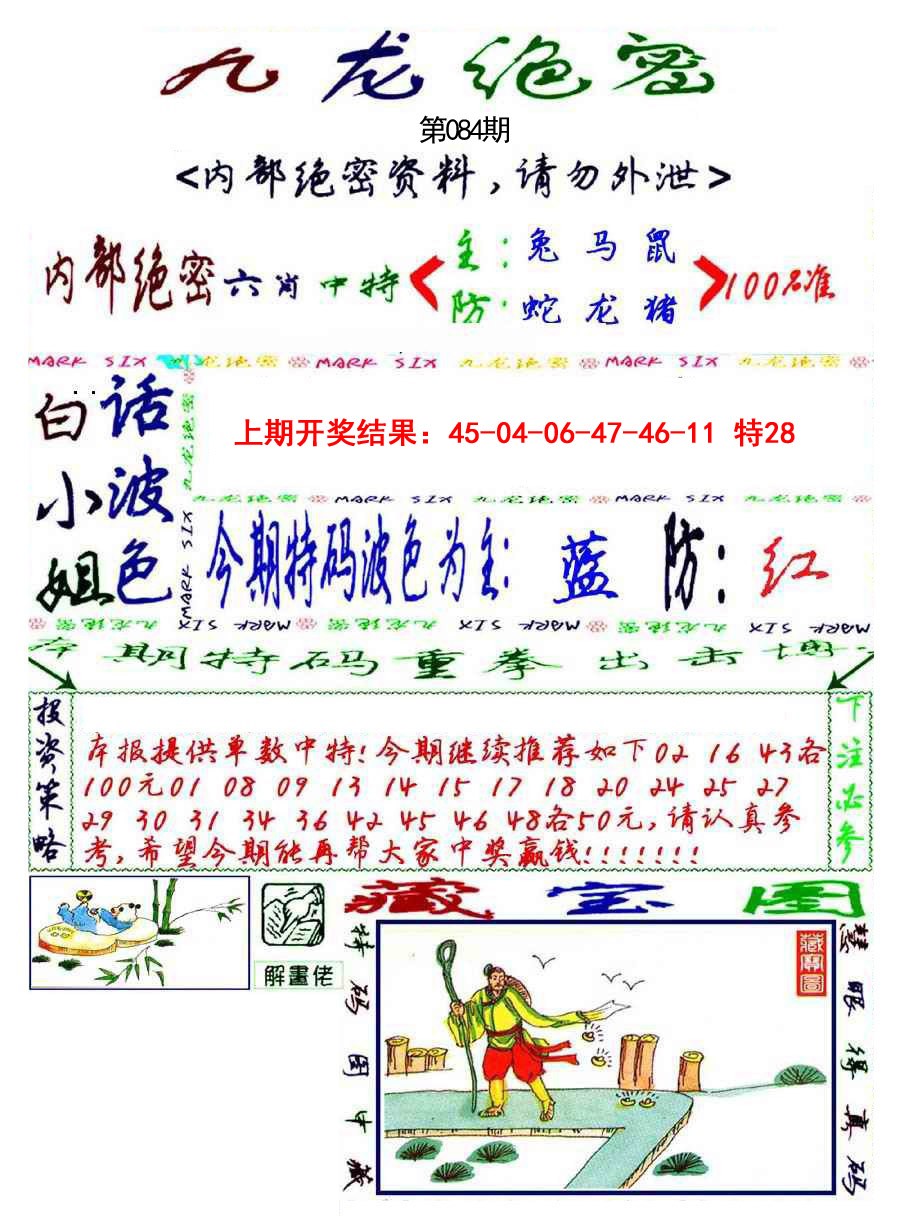 九龙绝密
第084期
<内部绝密资料,请勿外泄>
内部绝密六肖中特
主:兔马鼠
防:蛇龙猪
100%准
MARK SIX 九龙绝密 MARK SIX 九龙绝密 MARK SIX 九龙绝密
白小姐
话波色
九龙绝密
MARK SIX
上期开奖结果：45-04-06-47-46-11 特28
九龙绝密 MARK SIX 九龙绝密 MARK SIX 九龙绝密
今期特码波色为主: 蓝 防: 红
九龙绝密 MARK SIX 九龙绝密 MARK SIX 九龙绝密 MARK SIX
本期特码重拳出击
投资策略
本报提供单数中特!今期继续推荐如下02 16 43各
100元01 08 09 13 14 15 17 18 20 24 25 27
29 30 31 34 36 42 45 46 48各50元,请认真参
考,希望今期能再帮大家中奖赢钱!!!!!!!
下注必参
解畫佬
藏宝图
特码图中藏
藏寶圖
慧眼得真码